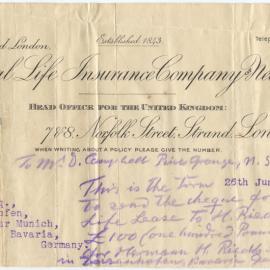 d London.
Established 1843.
Telep
l Life Insurance Company Ne
Head Office for the United Kingdom:
7&8, Norfolk Street, Strand, Lon
WHEN WRITING ABOUT A POLICY PLEASE GIVE THE NUMBER.
To Mr D. Campbell
This is the
26th Jun
to send the cheque fo
Life Lease to H.
£100 (one hundred Pound
for Hermann H.
ofen,
r Munich,
Bavaria,
Germany.
in Bavaria